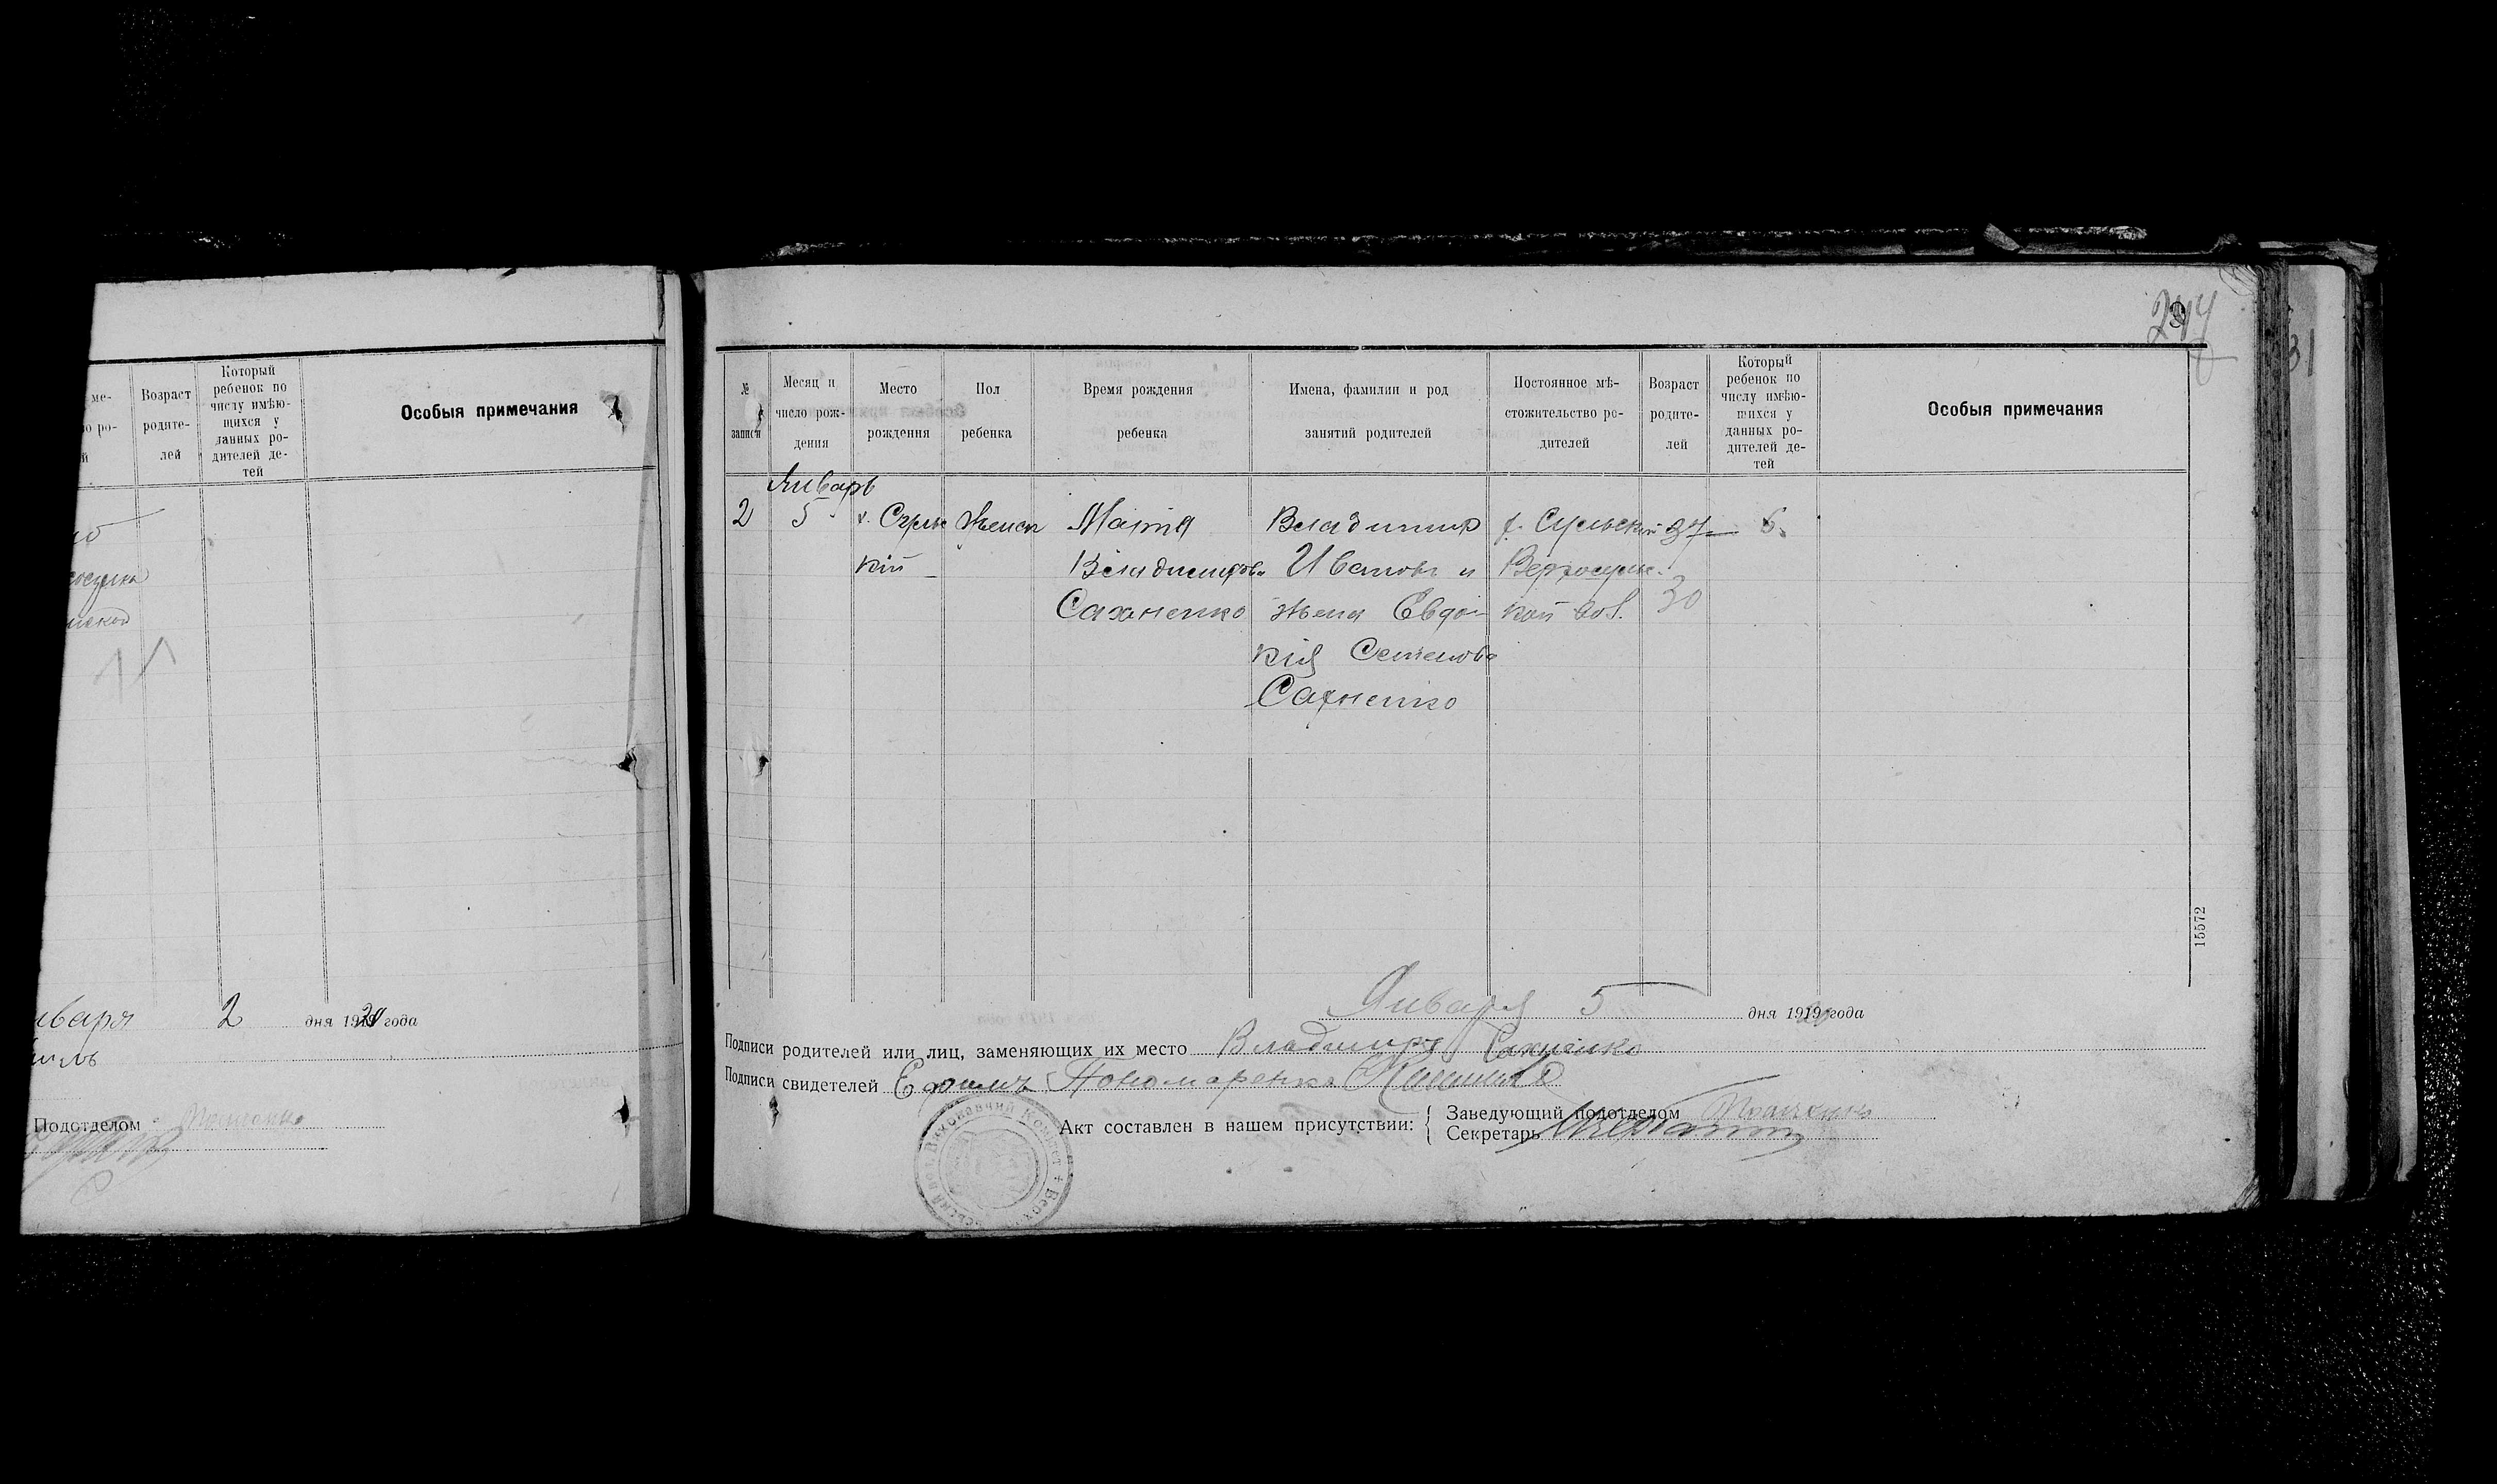 ме-
о ро-
й
Возраст
родите-
лей
Который
ребенок по
числу имѣю-
щихся у
данных ро-
дителей де-
тей
Особыя примечания
нваря 2 дня 1920 года
Подотделом
244
31
№
записи
Месяц и
число рож-
дения
Место
рождения
Пол
ребенка
Время рождения
ребенка
Имена, фамилии и род
занятий родителей
Постоянное мѣ-
стожительство ро-
дителей
Возраст
родите-
лей
Который
ребенок по
числу имѣю-
щихся у
данных ро-
дителей де-
тей
Особыя примечания
Январь
2 5 х. Суль Женск Марія Владимир х. Сульский 37 6.
кій Владимирова Иванов и Верхосуль-
Сахненко жена Евдо- кой вол. 30
кія Семенова
Сахненко
15572
Января 5 дня 1920 года
Подписи родителей или лиц, заменяющих их место Владимиръ Сахненко
Подписи свидетелей Ефимъ Пономаренко
Акт составлен в нашем присутствии:
Заведующий подотделом
Секретарь
Виконавчий Комітет